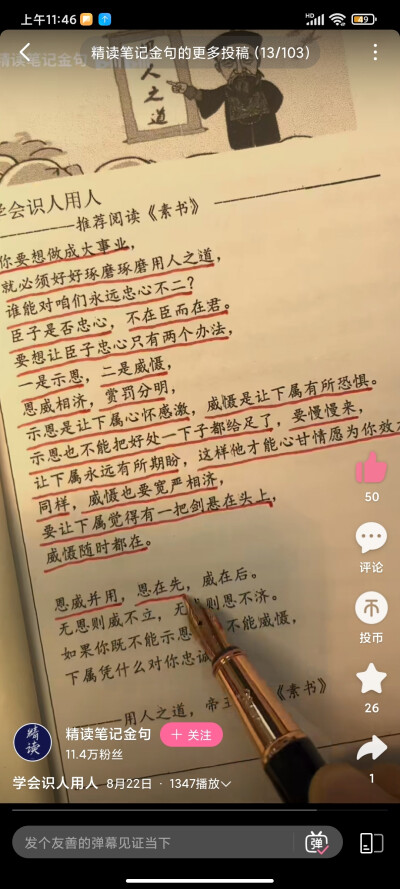 上午11:46
49
精读笔记金句的更多投稿（13/103）
精读笔记金句
人之道
学会识人用人
——推荐阅读《素书》
你要想做成大事业，
就必须好好琢磨琢磨用人之道，
谁能对咱们永远忠心不二？
臣子是否忠心，不在臣而在君。
要想让臣子忠心只有两个办法，
一是示恩，二是威慑，
恩威相济，赏罚分明，
示恩是让下属心怀感激，威慑是让下属有所恐惧。
示恩也不能把好处一下子都给足了，要慢慢来，
让下属永远有所期盼，这样他才能心甘情愿为你效
同样，威慑也要宽严相济，
要让下属觉得有一把剑悬在头上，
威慑随时都在。
恩威并用，恩在先，威在后。
无恩则威不立，无则恩不济。
如果你既不能示恩不能威慑，
下属凭什么对你忠诚
用人之道，帝《素书》
50
评论
投币
26
1
精读
精读笔记金句
+ 关注
11.4万粉丝
学会识人用人 8月22日 · 1347播放
发个友善的弹幕见证当下
弹